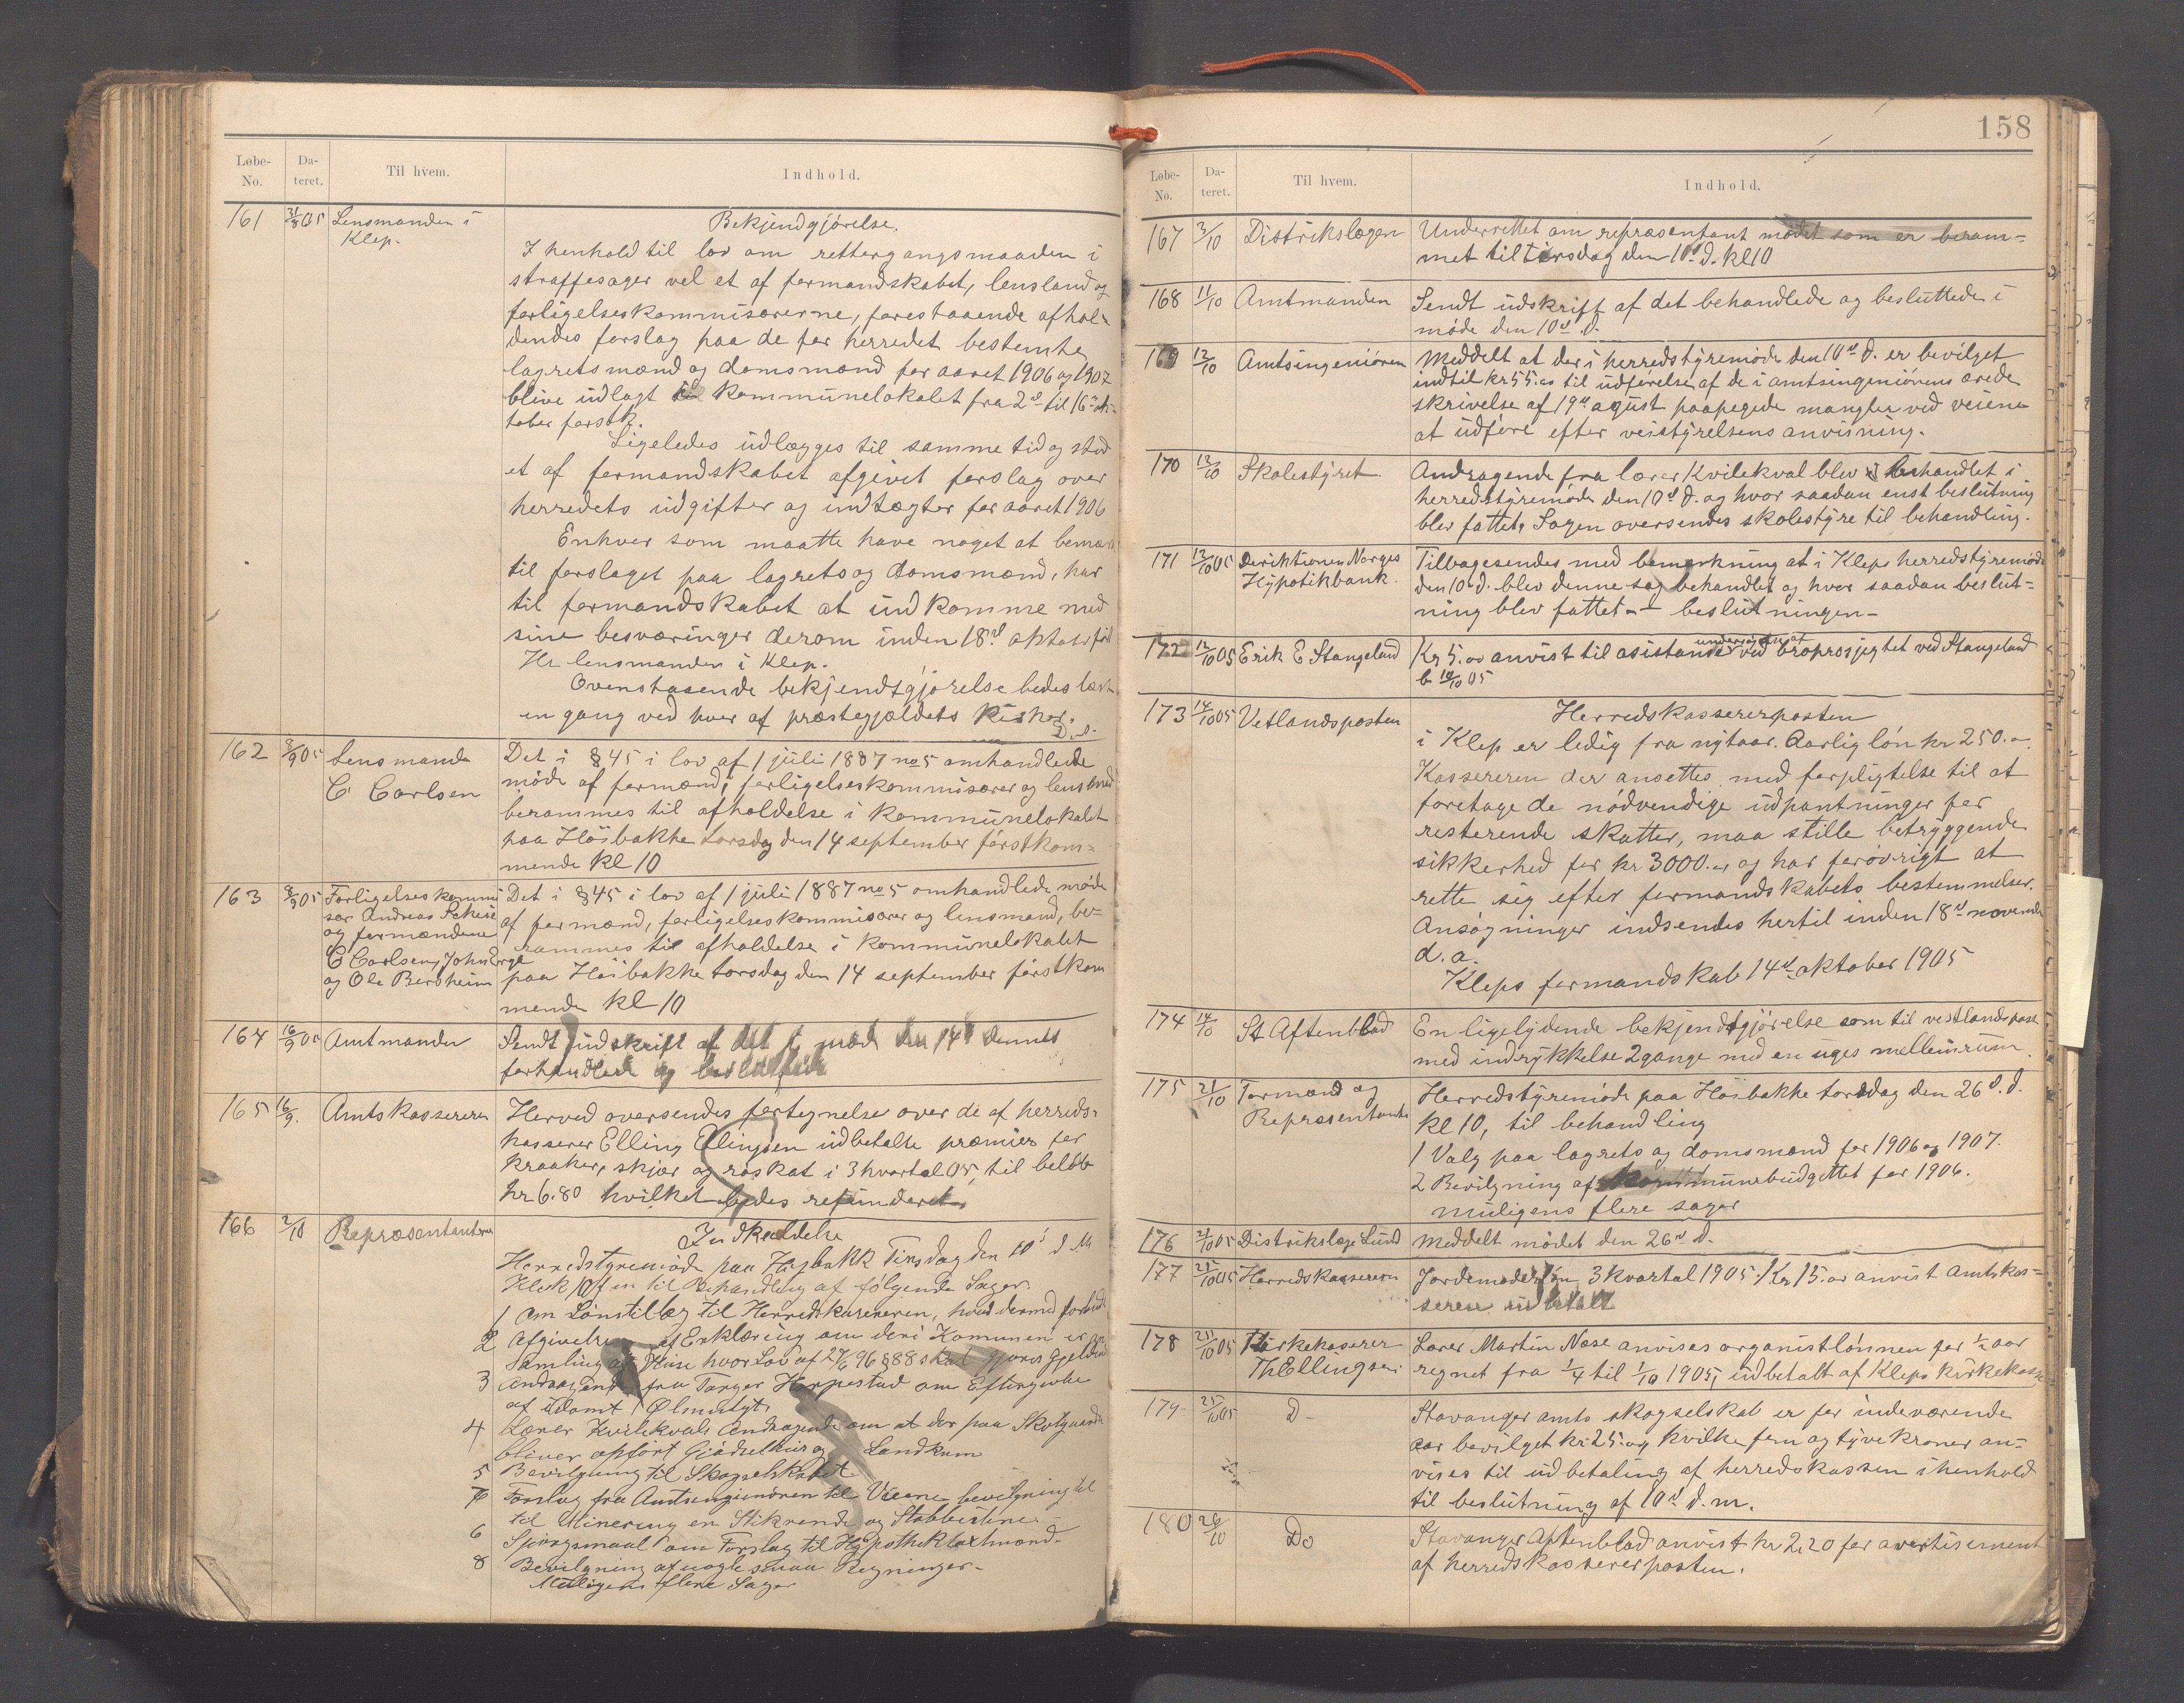 Løbe-No. Da-teret. Til hvem. Indhold.
161 31/8 05 Lensmanden i Klep. Bekjendgjørelse.
I henhold til lov om rettergangsmaaden i
straffesager vel et af formandskabet, lensland og
forligelseskommisærerne, forestaaende afhol-
dendes forslag paa de for herredet bestemte
lagretsmænd og domsmænd for aaret 1906 og 1907
blive udlagt i kommunelokalet fra 2d til 16d ok-
tober førstk.
Ligeledes udlægges til samme tid og sted
et af formandskabet afgivet forslag over
herredets udgifter og indtægter for aaret 1906
Enhver som maatte have noget at bemær
til forslaget paa lagrets og domsmænd, har
til formandskabet at indkomme med
sine besværinger derom inden 18d oktober
Hr lensmanden i Klep.
Ovenstaaende bekjendtgjørelse bedes læst
en gang ved hver af præstegjældets kirker.
D. S.
162 8/9 05 Lensmande
C Carlsen
Det i § 45 i lov af 1 juli 1887 no 5 omhandlede
møde af formænd, forligelseskommisærer og lensmænd
berammes til afholdelse i kommunelokalet
paa Høibakke torsdag den 14 september førstkom=
mende kl 10
163 8/9 05 Forligelseskommi
sær Andreas
og formændene
C Carlsen, John Erga
og Ole Bersheim
Det i § 45 i lov af 1 juli 1887 no 5 omhandlede møde
af formænd, forligelseskommisærer og lensmand, be=
rammes til afholdelse i kommunelokalet
paa Høibakke torsdag den 14 september førstkom
mende kl 10
164 16/9 05 Amtmanden Sendt udskrift af det i mød den 14 dennes
forhandlede og besluttede
165 16/9. Amtskassereren Herved oversendes fortegnelse over de af herreds-
kasserer Elling Ellingsen udbetalte præmier for
kraaker, skjær og røskat i 3 kvartal 05, til beløb
kr 6.80 hvilket bedes refunderet.
166 2/10 Repræsentanterne Indkaldelse
Herredstyremøde paa Høgbakk Tirsdag den 10' d M
Klok 10 fm til Behandling af følgende Sager.
1 Om Lønstillæg til Herredskassereren, hvad dermed forbindt
2 Afgivelse af Erklæring om den i Komunen er
Samling af Huse hvor Lov af 27/6 96 § 88 skal gjøres gjeldende
3 Andragende fra Torger Horpestad om Eftergivelse
af udømt Ølmulgt,
4 Lærer Kvilekvals Andragende om at der paa Skolgaarden
bliver opført Gjødselhus og Landrum
5 Bevilgning til Skogselskabet
7 Forslag fra Amtsingeniøren til Veiene bevilgning til
til Minering en Stikrende og Stabbestene
6 Spørgsmaal om Forslag til Hypothektaxtmænd.
8 Bevilgning af nogle smaa Regninger.
Muligens flere Sager
158
Løbe-No. Da-teret. Til hvem. Indhold.
167 3/10 Distrikslægen Underrettet om repræsentant mødet som er beram=
met til tirsdag den 10d d. kl 10
168 11/10 Amtmanden Sendt udskrift af det behandlede og besluttede i
møde den 10d d.
169 12/10 Amtsingeniøren Meddelt at der i herredstyremøde den 10d d. er bevilget
indtil kr 55.00 til udførelse af de i amtsingeniørens ærede
skrivelse af 19d agust paapegede mangler ved veiene
at udføre efter veistyrelsens anvisning.
170 12/10 Skolestyret Andragende fra lærer Kvilekval blev behandlet i
herredstyremøde den 10d d. og hvor saadan enst beslutning
blev fattet. Sagen oversendes skolestyre til behandling.
171 12/10 05 Deriktionen Norges
Hypotikbank.
Tilbagesendes med bemærkning at i Kleps herredstyremøde
den 10d. d. blev denne sag behandlet og hvor saadan beslut=
ning blev fattet — beslutningen —
172 12/10 05 Erik E Stangeland Kr 5.00 anvist til asistanse undersøgelse af ved broprosjegtet ved Stangeland
b 10/10 05
173 14/10 05 Vetlandsposten Herredskassererposten
i Klep er ledig fra nytaar. Aarlig løn kr 250.–.
Kassereren der ansettes med forpligtelse til at
foretage de nødvendige udpantninger for
resterende skatter, maa stille betryggende
sikkerhed for kr 3000.00 og har forøvrigt at
rette sig efter formandskabets bestemmelser.
Ansøgninger indsendes hertil inden 18d november
d. a.
Kleps formandskab 14d oktober 1905
174 14/10 St Aftenblad En ligelydende bekjendtgjørelse som til vestlandspost
med indrykkelse 2 gange med en uges mellemrum.
175 21/10 Formænd og
Repræsentante
Herredstyremøde paa Høibakke torsdag den 26d. d.
kl 10, til behandling
1 Valg paa lagrets og domsmænd for 1906 og 1907.
2 Bevilgning af kommunebudgettet for 1906.
muligens flere sager
176 21/10 05 Distrikslæge Lund Meddelt mødet den 26d d.
177 25/10 05 Herredskassereren Jordemoderløn 3 kvartal 1905 Kr 15.00 anvist Amtskas=
sereren udbetalt
178 25/10 05 Kirkekaserer
Th Ellingsen
Lærer Martin Næse anvises organistlønnen for ½ aar
regnet fra 1/4 til 1/10 1905, udbetalt af Kleps kirkekasse
179 25/10 05 D– Stavanger amts skogselskab er for indeværende
aar bevilget kr 25.00 hvilke fem og tyve kroner an=
vises til udbetaling af herredskassen i henhold
til beslutning af 10d d. m.
180 26/10 Do Stavanger Aftenblad anvist kr 2,20 for avertisement
af herredskassererposten.